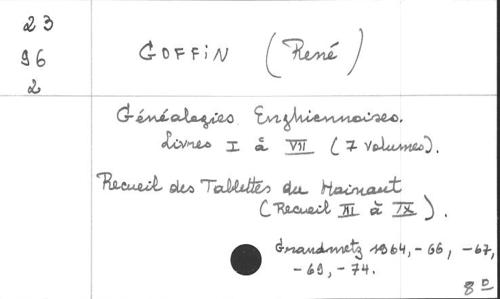 23
96
2
GOFFIN (René)
Généalogies Enghiennoises.
Livres I à VII (7 volumes).
Recueil des Tablettes du Hainaut
(Recueil III à IX).
Grandmetz 1964, -66, -67,
-69, -74.
8º